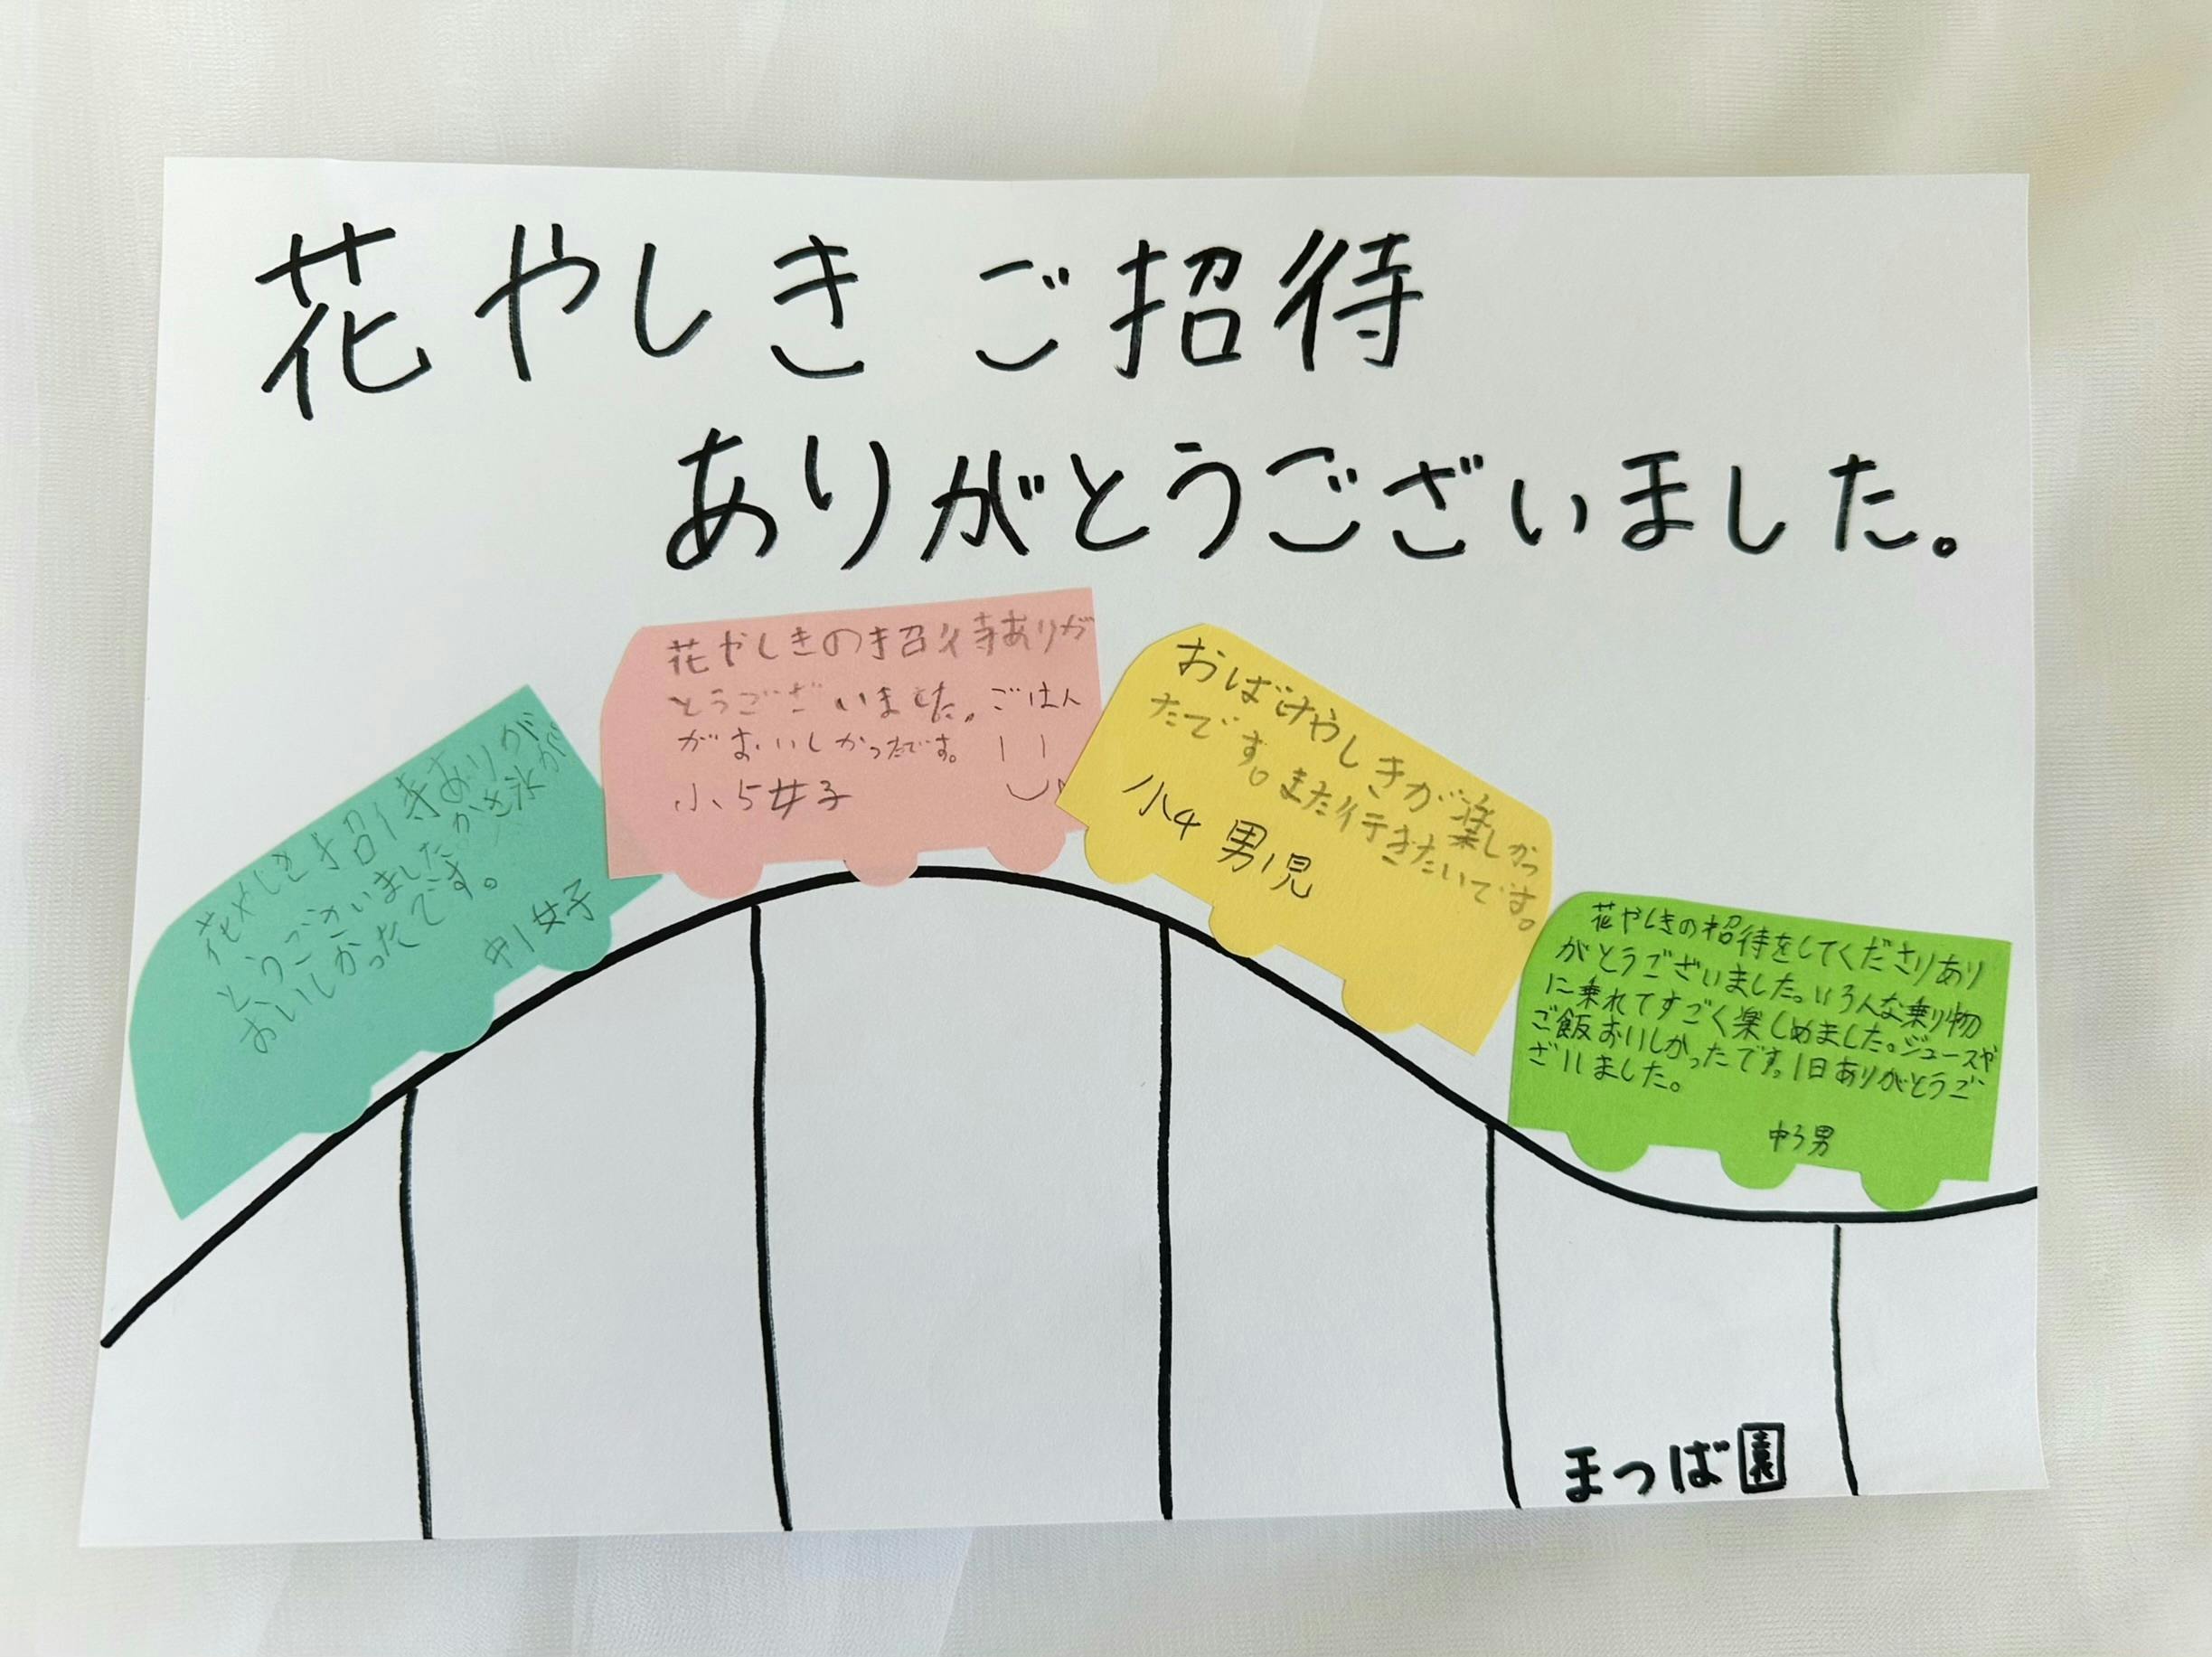 花やしきご招待
ありがとうございました。
花やしき招待ありが
とうございましたかき氷が
おいしかったです。
中1女子
花やしきの招待ありが
とうございました。ごはん
がおいしかったです。
小5女子
おばけやしきが楽しかっ
たです。また行きたいです。
小4男児
花やしきの招待をしてくださりあり
がとうございました。いろんな乗り物
に乗れてすごく楽しめました。ジュースや
ご飯おいしかったです。1日ありがとうご
ざいました。
中3男
まつば園